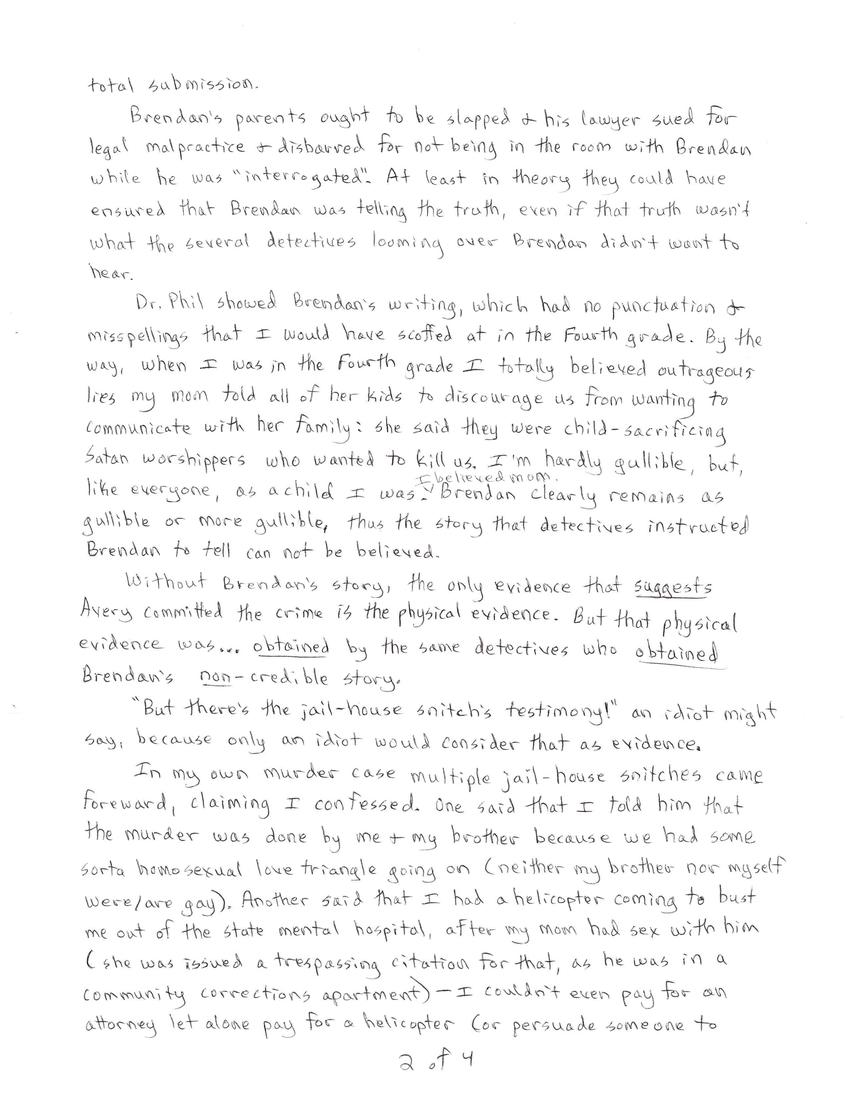 total submission.
Brendan's parents ought to be slapped + his lawyer sued for
legal malpractice + disbarred for not being in the room with Brendan
while he was "interrogated". At least in theory they could have
ensured that Brendan was telling the truth, even if that truth wasn't
what the several detectives looming over Brendan didn't want to
hear.
Dr. Phil showed Brendan's writing, which had no punctuation +
misspellings that I would have scoffed at in the Fourth grade. By the
way, when I was in the Fourth grade I totally believed outrageous
lies my mom told all of her kids to discourage us from wanting to
communicate with her family: she said they were child-sacrificing
Satan worshippers who wanted to kill us. I'm hardly gullible, but,
I believed mom.
like everyone, as a child I was. Brendan clearly remains as
gullible or more gullible, thus the story that detectives instructed
Brendan to tell can not be believed.
Without Brendan's story, the only evidence that suggests
Avery committed the crime is the physical evidence. But that physical
evidence was... obtained by the same detectives who obtained
Brendan's non-credible story.
"But there's the jail-house snitch's testimony!" an idiot might
say, because only an idiot would consider that as evidence.
In my own murder case multiple jail-house snitches came
foreward, claiming I confessed. One said that I told him that
the murder was done by me + my brother because we had some
sorta homosexual love triangle going on (neither my brother nor myself
were/are gay). Another said that I had a helicopter coming to bust
me out of the state mental hospital, after my mom had sex with him
(she was issued a trespassing citation for that, as he was in a
community corrections apartment) - I couldn't even pay for an
attorney let alone pay for a helicopter (or persuade someone to
2 of 4